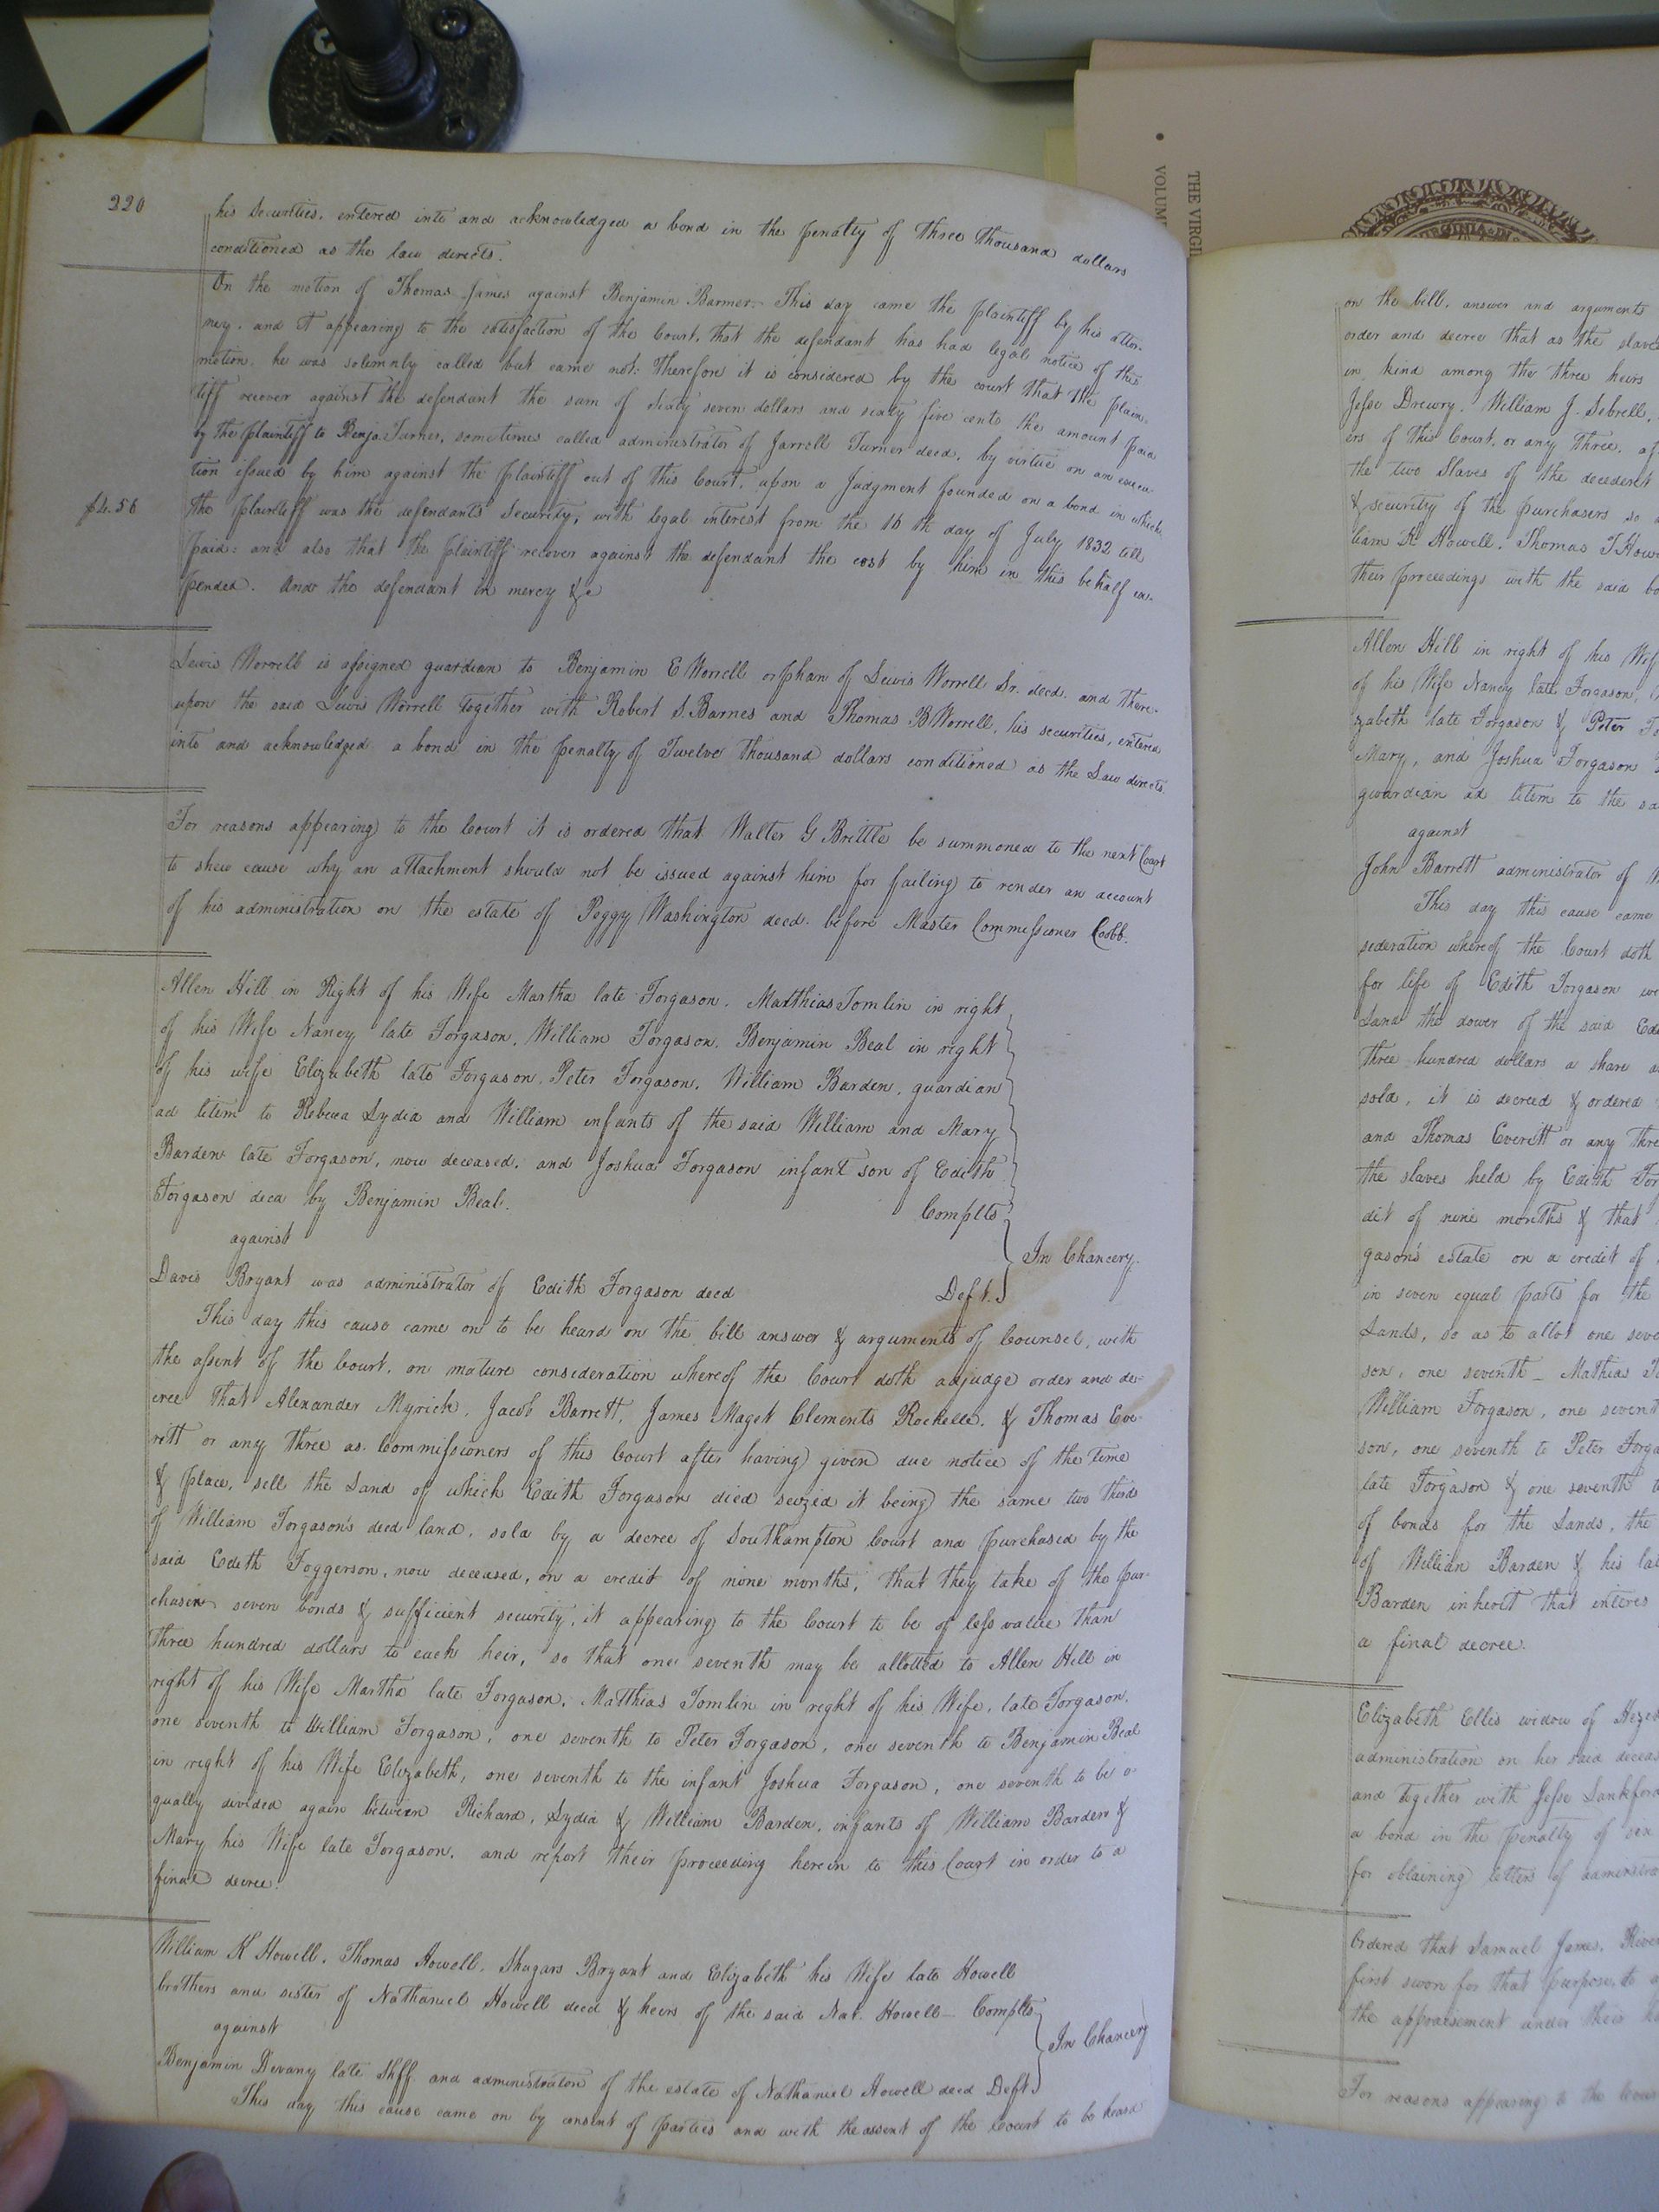 220
his Securities, entered into and acknowledged a bond in the penalty of three thousand dollars
conditioned as the law directs.
On the motion of Thomas James against Benjamin Barmer. This day came the plaintiff by his attor-
ney, and it appearing to the satisfaction of the Court, that the defendant has had legal notice of this
motion, he was solemnly called but came not: Therefore it is considered by the court that the plain-
tiff recover against the defendant the sum of Sixty seven dollars and sixty five cents the amount paid
by the plaintiff to Benja. Turner, sometimes called administrator of Jarrell Turner decd, by virtue on an execu-
tion issued by him against the plaintiff out of this Court, upon a Judgment founded on a bond in which
$4.56
the plaintiff was the defendants Security, with legal interest from the 16th day of July 1832 till
paid: and also that the plaintiff recover against the defendant the cost by him in this behalf ex-
pended. And the defendant in mercy &c
Lewis Worrell is assigned guardian to Benjamin E Worrell orphan of Lewis Worrell Sr. decd. and there-
upon the said Lewis Worrell together with Robert S. Barnes and Thomas B Worrell, his securities, entered
into and acknowledged a bond in the penalty of Twelve thousand dollars conditioned as the Law directs.
For reasons appearing to the Court it is ordered that Walter G Brittle be summoned to the next Court
to shew cause why an attachment should not be issued against him for failing to render an account
of his administration on the estate of Peggy Washington decd. before Master Commissioner Cobb.
Allen Hill in Right of his Wife Martha late Forgason. Matthias Tomlin in right
of his Wife Nancy late Forgason, William Forgason. Benjamin Beal in right
of his wife Elizabeth late Forgason, Peter Forgason, William Barden, guardian
ad litem to Rebecca Lydia and William infants of the said William and Mary
Barden late Forgason, now deceased, and Joshua Forgason infant son of Edith
Forgason decd by Benjamin Beal. Complts
against
In Chancery.
Davis Bryant was administrator of Edith Forgason decd Deft.
This day this cause came on to be heard on the bill answer & arguments of Counsel, with
the assent of the Court, on mature consideration whereof the Court doth adjudge order and de-
cree that Alexander Myrick, Jacob Barrett, James Maget Clements Rochelle, & Thomas Eve-
ritt or any three as Commissioners of this Court after having given due notice of the time
& place, sell the Land of which Edith Forgason died seized it being the same two thirds
of William Forgason's decd land, sold by a decree of Southampton Court and purchased by the
said Edith Foggerson, now deceased, on a credit of nine months, that they take of the pur-
chaser seven bonds & sufficient security, it appearing to the Court to be of less value than
three hundred dollars to each heir, so that one seventh may be allotted to Allen Hill in
right of his Wife Martha late Forgason, Matthias Tomlin in right of his Wife, late Forgason,
one seventh to William Forgason, one seventh to Peter Forgason, one seventh to Benjamin Beal
in right of his Wife Elizabeth, one seventh to the infant Joshua Forgason, one seventh to be e-
qually divided again between Richard, Lydia & William Barden, infants of William Barden &
Mary his Wife late Forgason, and report their proceeding herein to this Court in order to a
final decree.
William K Howell, Thomas Howell, Shugars Bryant and Elizabeth his Wife late Howell
brothers and sister of Nathaniel Howell decd & heirs of the said Nat. Howell - Complts
against
In Chancery
Benjamin Devany late Shff and administrator of the estate of Nathaniel Howell decd Deft.
This day this cause came on by consent of parties and with the assent of the Court to be heard
THE VIRGI
VOLUM
on the bill, answer and arguments
order and decree that as the slaves
in kind among the three heirs
Jesse Drewry, William J. Sebrell,
ers of this Court, or any three, af
the two Slaves of the decedent
& security of the purchasers so
liam K Howell, Thomas J Howe
their proceedings with the said bo
Allen Hill in right of his Wif
of his Wife Nancy late Forgason,
zabeth late Forgason & Peter Fo
Mary, and Joshua Forgason
guardian ad litem to the sa
against
John Barrett administrator of
This day this cause came
sideration whereof the Court doth
for life of Edith Forgason
Land the dower of the said Ed
three hundred dollars a share
sold, it is decreed & ordered
and Thomas Everitt or any thre
the slaves held by Edith For
dit of nine months & that
gason's estate on a credit of
in seven equal parts for the
Lands, so as to allot one seve
son, one seventh - Mathias
William Forgason, one sevent
son, one seventh to Peter Forga
late Forgason & one seventh
of bonds for the Lands, the
of William Barden & his la
Barden inherit that interes
a final decree.
Elizabeth Ellis widow of Heze
administration on her said decea
and together with Jesse Lankford
a bond in the penalty of
for obtaining letters of administra
Ordered that Samuel James,
first sworn for that purpose, to
the appraisement under their
For reasons appearing to the Cour